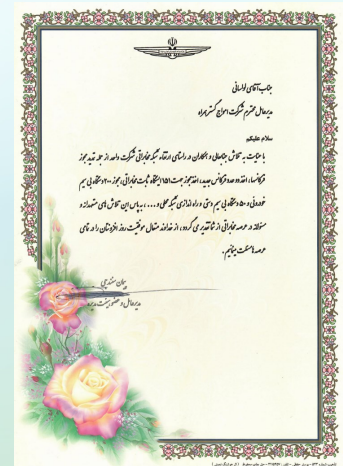 جناب آقای لواسانی
مدیرعامل محترم شرکت امواج گستر همراه
سلام علیکم
با عنایت به تلاش جنابعالی و همکاران در راستای ارتقاء شبکه مخابراتی شرکت واحد از جمله تمدید مجوز
فرکانسها، اخذ و صد فرکانس جدید، اخذ مجوز جهت ۱۵۱ ایستگاه ثابت مخابراتی، مجوز ۲۰۰ دستگاه بی سیم
خودرویی و ۵۰ دستگاه بی سیم دستی و راه اندازی شبکه محلی و ...، به پاس این تلاش های متعهدانه و
مسئولانه در عرصه مخابراتی از شما تقدیر می گردد، از خداوند متعال موفقیت روز افزونتان را در تمامی
عرصه ها مسئلت مینمایم.
پیمان سنندجی
مدیرعامل و عضو هیئت مدیره